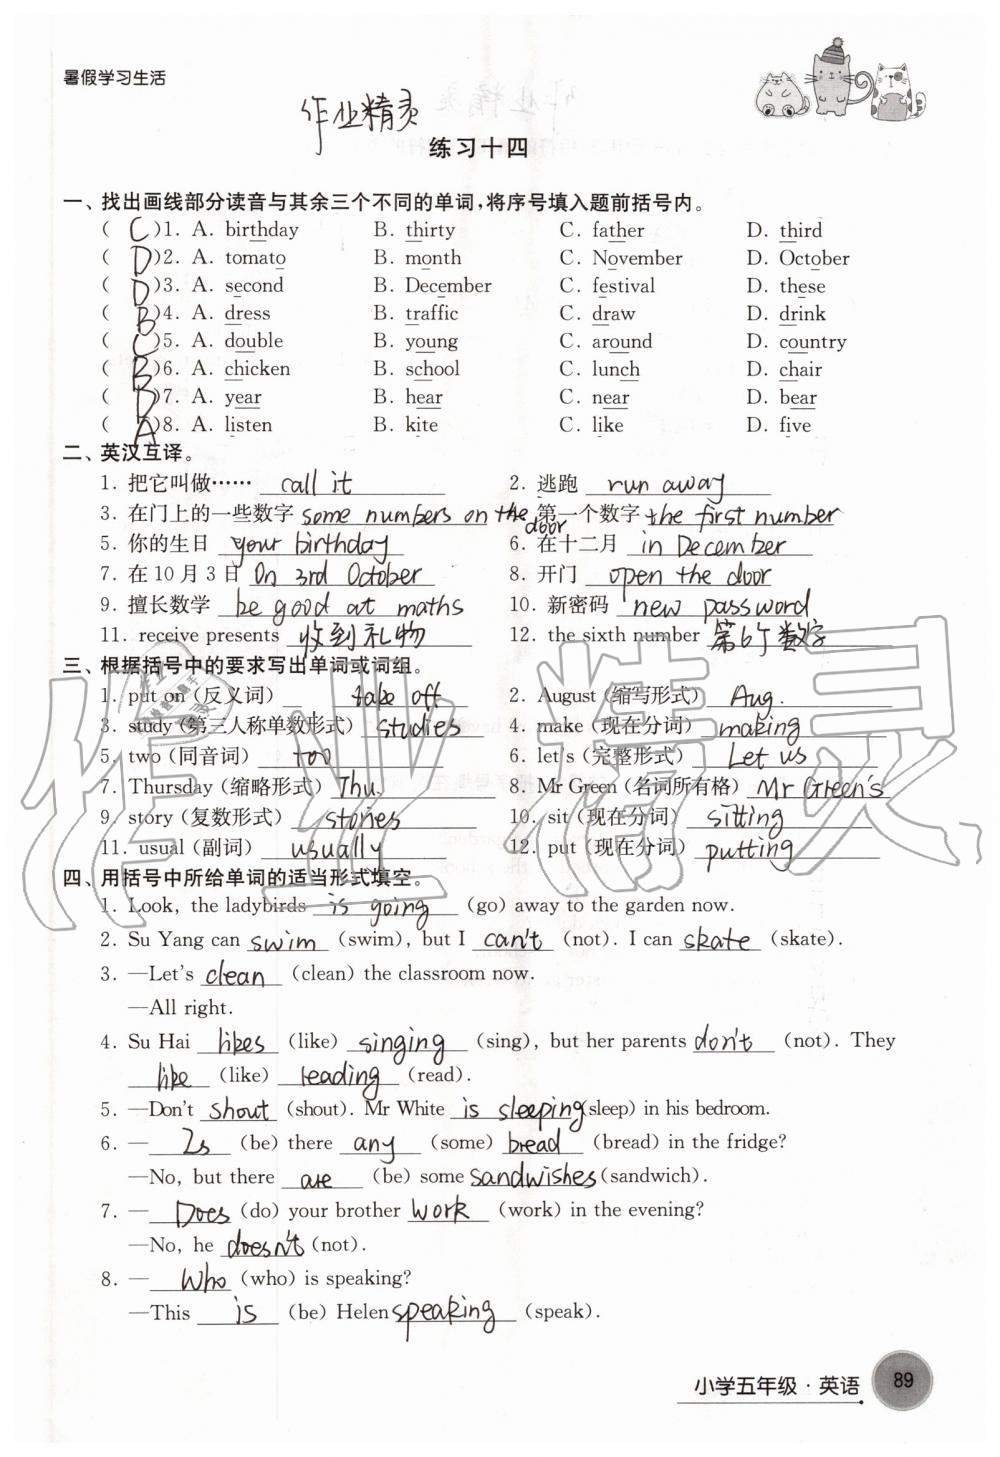 暑假学习生活
作业精灵
练习十四
一、找出画线部分读音与其余三个不同的单词,将序号填入题前括号内。
( C )1. A. birthday B. thirty C. father D. third
( D )2. A. tomato B. month C. November D. October
( D )3. A. second B. December C. festival D. these
( B )4. A. dress B. traffic C. draw D. drink
( C )5. A. double B. young C. around D. country
( B )6. A. chicken B. school C. lunch D. chair
( D )7. A. year B. hear C. near D. bear
( A )8. A. listen B. kite C. like D. five
二、英汉互译。
1. 把它叫做…… call it 2. 逃跑 run away
3. 在门上的一些数字 some numbers on the door 4. 第一个数字 the first number
5. 你的生日 your birthday 6. 在十二月 in December
7. 在10月3日 On 3rd October 8. 开门 open the door
9. 擅长数学 be good at maths 10. 新密码 new password
11. receive presents 收到礼物 12. the sixth number 第6个数字
三、根据括号中的要求写出单词或词组。
1. put on(反义词) take off 2. August(缩写形式) Aug.
3. study(第三人称单数形式) studies 4. make(现在分词) making
5. two(同音词) too 6. let's(完整形式) Let us
7. Thursday(缩略形式) Thu. 8. Mr Green(名词所有格) Mr Green's
9. story(复数形式) stories 10. sit(现在分词) sitting
11. usual(副词) usually 12. put(现在分词) putting
四、用括号中所给单词的适当形式填空。
1. Look, the ladybirds is going (go) away to the garden now.
2. Su Yang can swim (swim), but I can't (not). I can skate (skate).
3. —Let's clean (clean) the classroom now.
—All right.
4. Su Hai likes (like) singing (sing), but her parents don't (not). They
like (like) reading (read).
5. —Don't shout (shout). Mr White is sleeping (sleep) in his bedroom.
6. — Is (be) there any (some) bread (bread) in the fridge?
—No, but there are (be) some sandwishes (sandwich).
7. — Does (do) your brother work (work) in the evening?
—No, he doesn't (not).
8. — Who (who) is speaking?
—This is (be) Helen speaking (speak).
小学五年级·英语 89
作业精灵